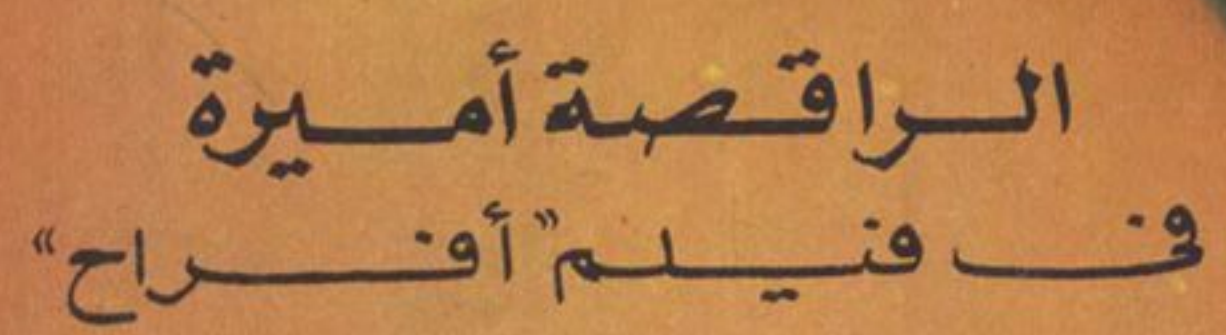 الراقصة أميرة
فى فيلم "أفراح"